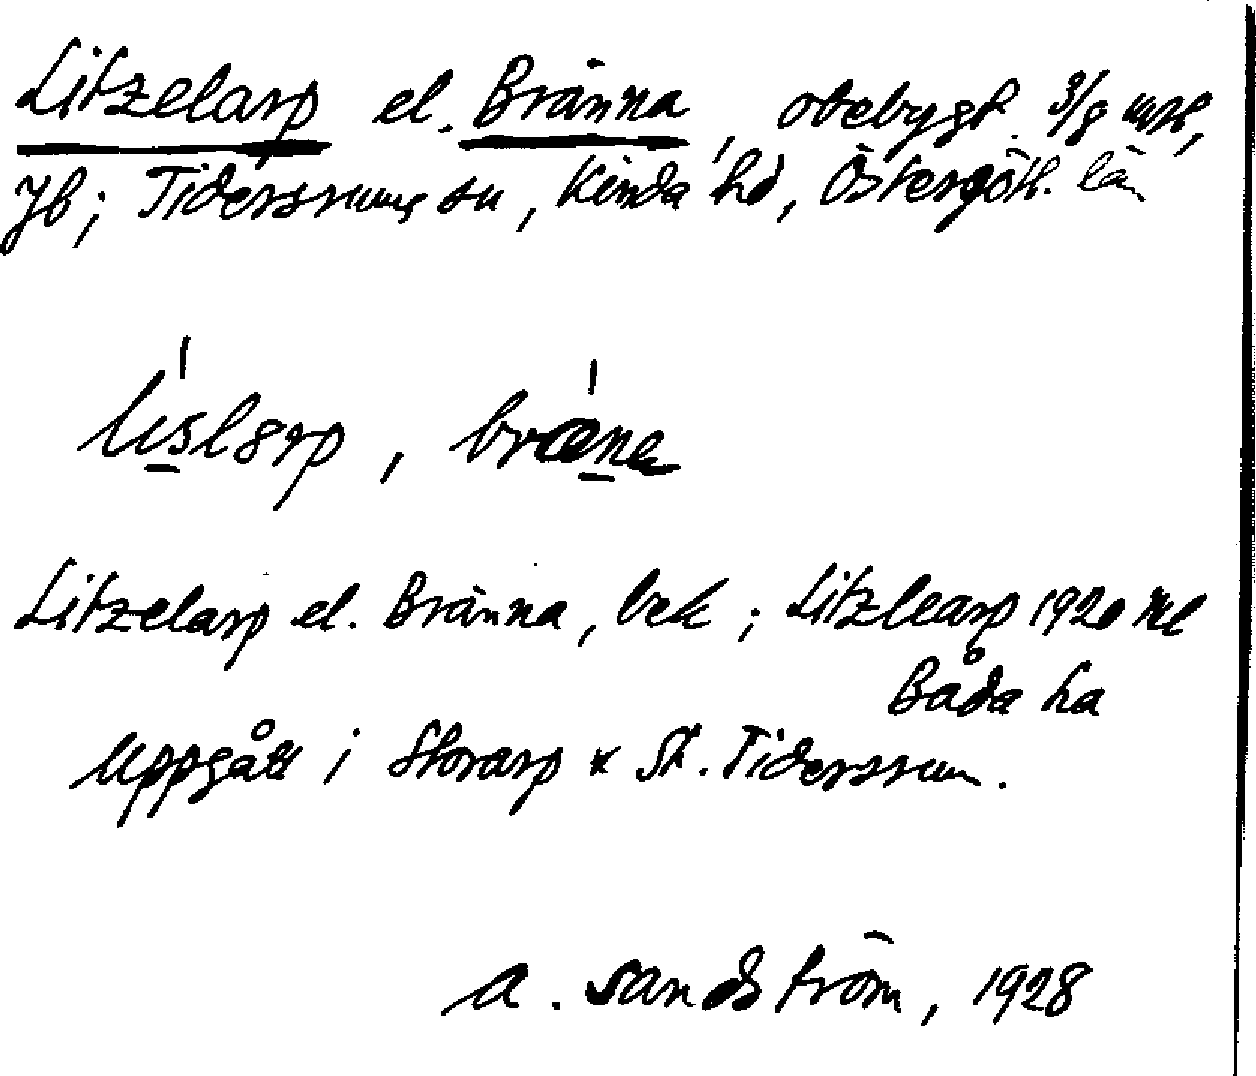 Litzelarp el. Bränna, obebyggt. 3/8 mtl,
Jb; Tidersrums sn, Kinda hd, Östergötl. län
lislarp, bræna
Litzelarp el. Bränna, bek; Litzlearp 1920
Båda ha
uppgått i Storarp x St. Tidersrum.
A. Sandström, 1928